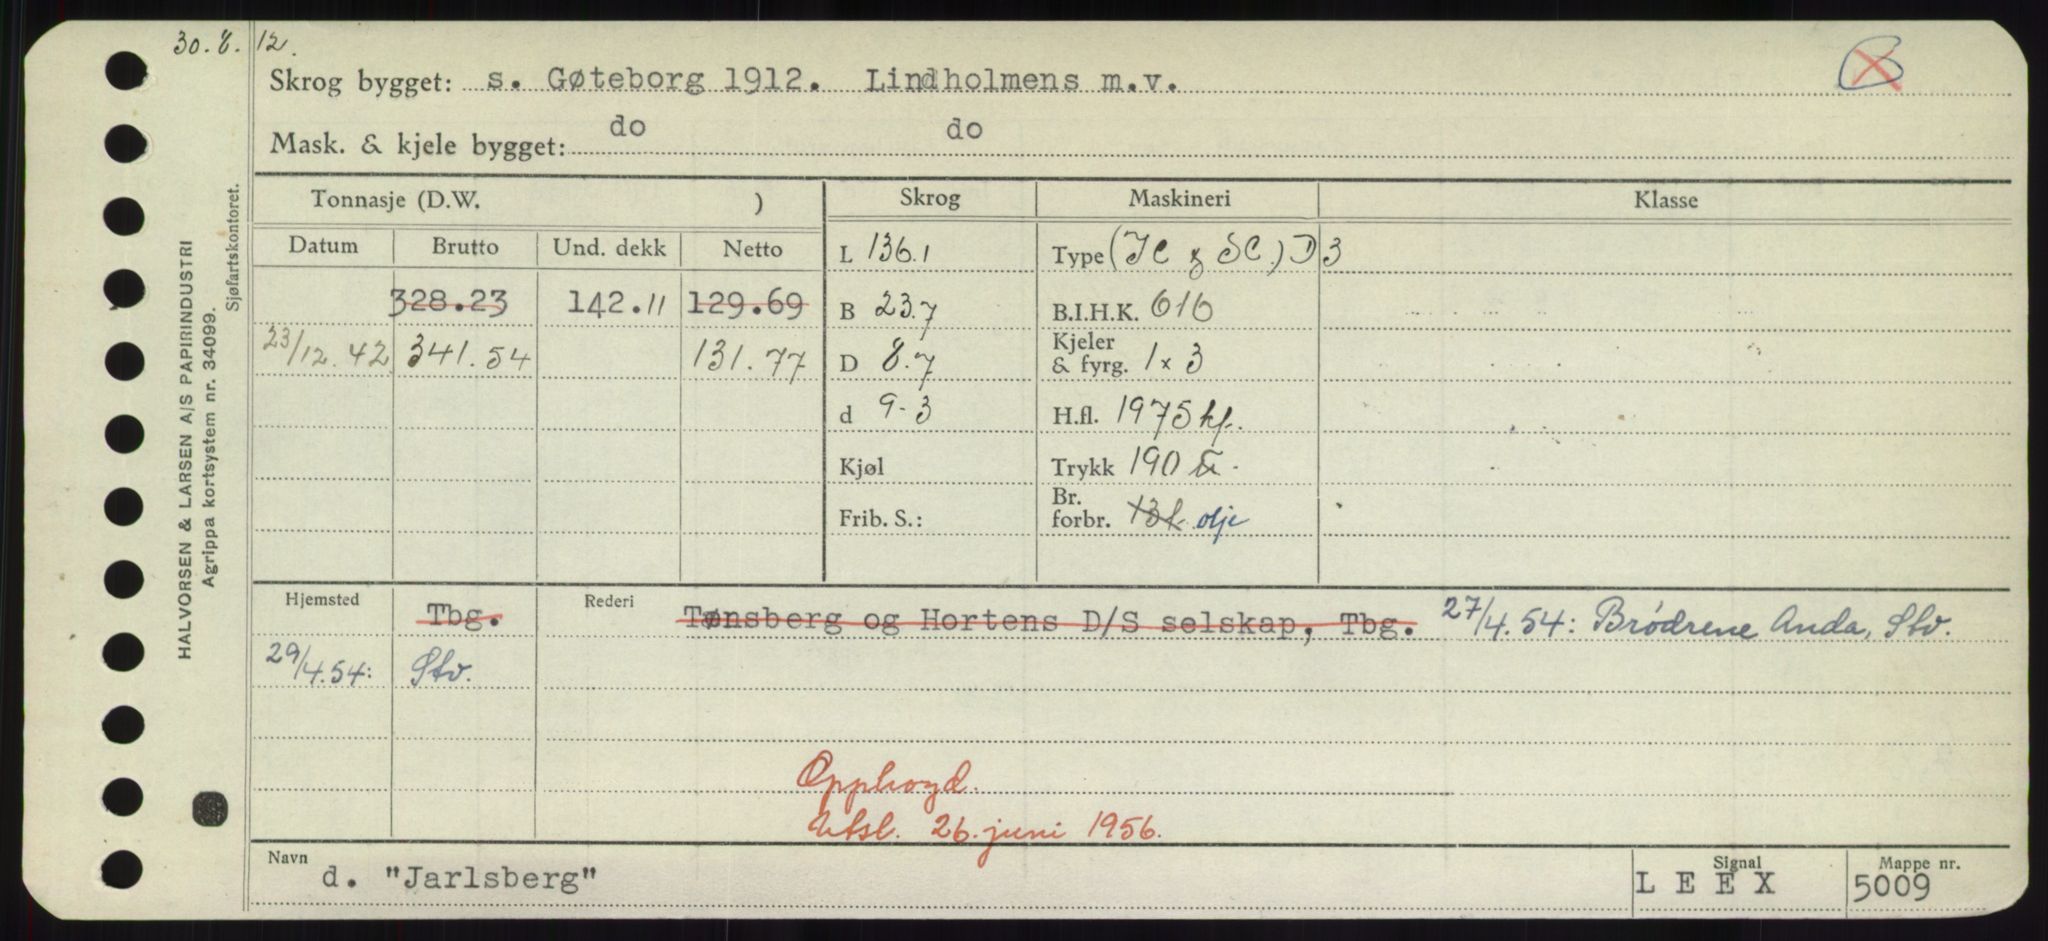 30.8.12.
Skrog bygget: s. Gøteborg 1912. Lindholmens m.v.
Mask. & kjele bygget: do do
HALVORSEN & LARSEN A/S PAPIRINDUSTRI
Agrippa kortsystem nr. 34099.
Sjøfartskontoret.
Tonnasje (D.W. ) Skrog Maskineri Klasse
Datum Brutto Und. dekk Netto
L 136.1 Type D3
328.23 142.11 129.69 B 23.7 B.I.H.K. 616
23/12.42 341.54 131.77 D 8.7 Kjeler & fyrg. 1 x 3
d 9.3 H.fl. 1975 kf.
Kjøl Trykk 190
Frib. S.: Br. forbr. 13 olje
Hjemsted Tbg. Rederi Tønsberg og Hortens D/S selskap, Tbg. 27/4.54: Brødrene Anda, Stv.
29/4.54: Stv.
Opphogd.
Utsl. 26. juni 1956.
Navn d. "Jarlsberg" Signal L E E X Mappe nr. 5009